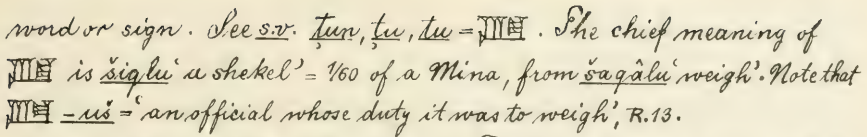 word or sign. See s.v. ṭun, ṭu, tu = . The chief meaning of
is šiqlu ‘a shekel’ = 1/60 of a Mina, from šaqâlu ‘weigh’. Note that
-uš = ‘an official whose duty it was to weigh’, R.13.